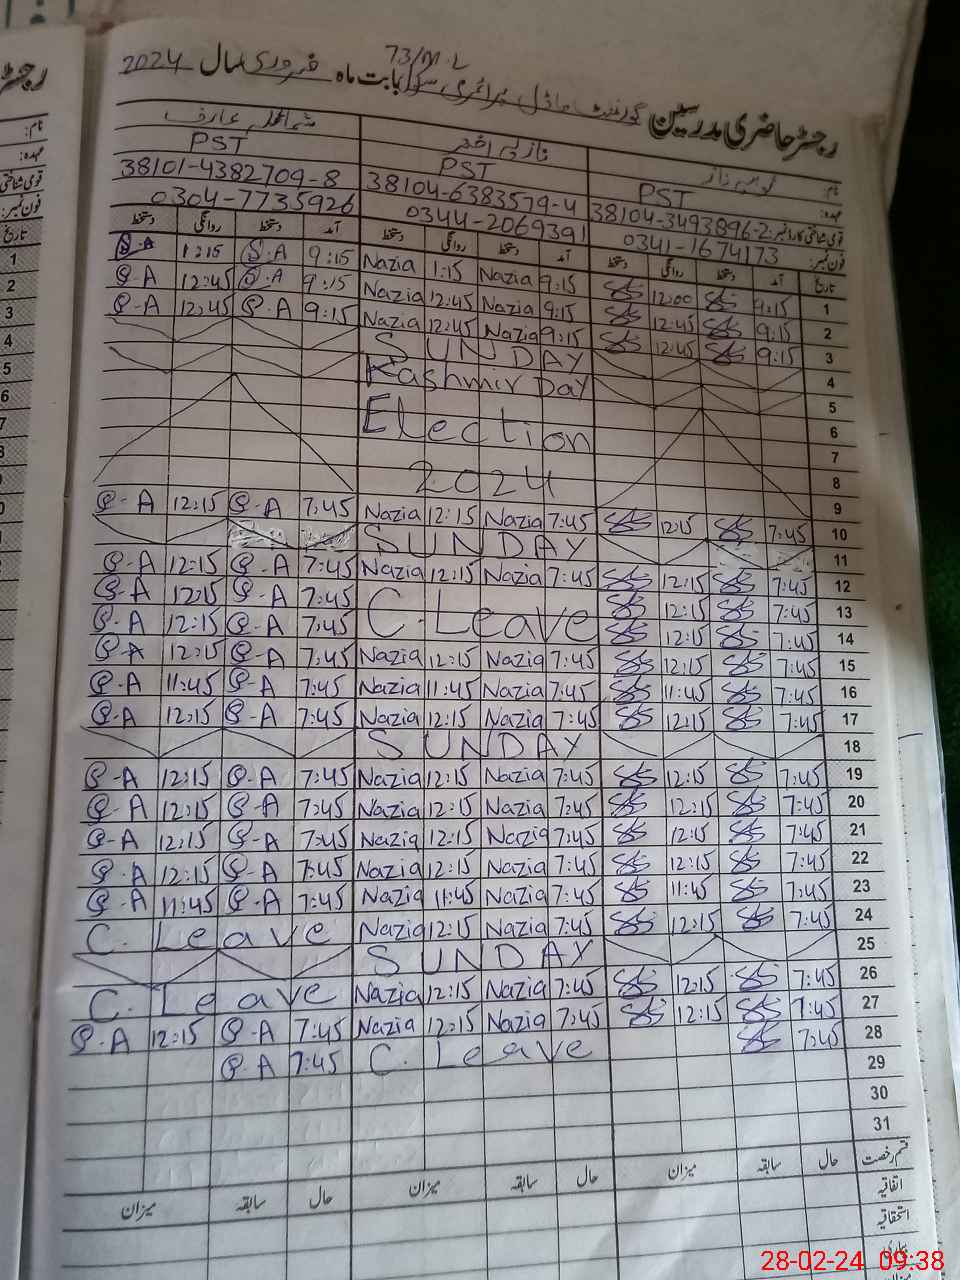 رجسٹر حاضری مدرسین گورنمنٹ ماڈل پرائمری سکول 73/M.L بابت ماہ فروری سال 2024
نام: نازیہ اختر شمائلہ عارف
عہدہ: PST PST PST
قومی شناختی کارڈ نمبر: 38104-3493896-2 38104-6383579-4 38101-4382709-8
فون نمبر: 0341-1674173 0344-2069391 0304-7735926
تاریخ آمد دستخط روانگی دستخط آمد دستخط روانگی دستخط آمد دستخط روانگی دستخط
1 9:15 12:00 9:15 Nazia 1:15 Nazia 9:15 S.A 1:15 S.A
2 9:15 12:45 9:15 Nazia 12:45 Nazia 9:15 S.A 12:45 S-A
3 9:15 12:45 9:15 Nazia 12:45 Nazia 9:15 S.A 12:45 S-A
4 SUNDAY
5 Kashmir Day
6 Election
7
8 2024
9
10 7:45 12:15 7:45 Nazia 12:15 Nazia 7:45 S-A 12:15 S-A
11 SUNDAY
12 7:45 12:15 7:45 Nazia 12:15 Nazia 7:45 S-A 12:15 S-A
13 7:45 12:15 C. Leave 7:45 S-A 12:15 S-A
14 7:45 12:15 7:45 S-A 12:15 S-A
15 7:45 12:15 7:45 Nazia 12:15 Nazia 7:45 S-A 12:15 S-A
16 7:45 11:45 7:45 Nazia 11:45 Nazia 7:45 S-A 11:45 S-A
17 7:45 12:15 7:45 Nazia 12:15 Nazia 7:45 S-A 12:15 S-A
18 SUNDAY
19 7:45 12:15 7:45 Nazia 12:15 Nazia 7:45 S-A 12:15 S-A
20 7:45 12:15 7:45 Nazia 12:15 Nazia 7:45 S-A 12:15 S-A
21 7:45 12:15 7:45 Nazia 12:15 Nazia 7:45 S-A 12:15 S-A
22 7:45 12:15 7:45 Nazia 12:15 Nazia 7:45 S-A 12:15 S-A
23 7:45 11:45 7:45 Nazia 11:45 Nazia 7:45 S-A 11:45 S-A
24 7:45 12:15 7:45 Nazia 12:15 Nazia C. Leave
25 SUNDAY
26 7:45 12:15 7:45 Nazia 12:15 Nazia C. Leave
27 7:45 12:15 7:45 Nazia 12:15 Nazia 7:45 S-A 12:15 S-A
28 7:45 C. Leave 7:45 S.A
29
30
31
قسم رخصت حال سابقہ میزان حال سابقہ میزان حال سابقہ میزان
اتفاقیہ
استحقاقیہ
بیماری
میزان
28-02-24 09:38
رجسٹر
نام:
عہدہ:
قومی شناختی
فون نمبر:
تاریخ
1
2
3
4
5
6
7
8